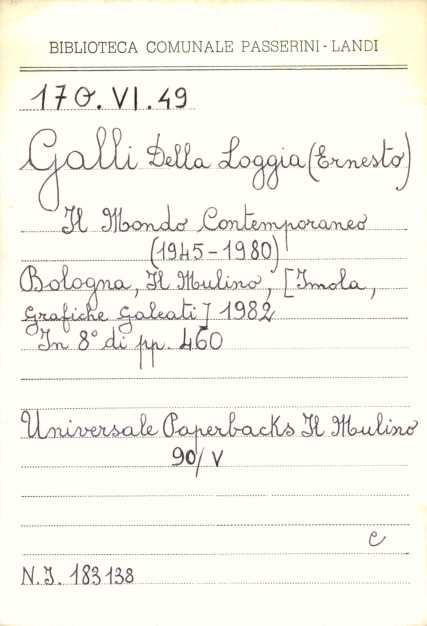 BIBLIOTECA COMUNALE PASSERINI - LANDI
170. VI. 49
Galli Della Loggia (Ernesto)
Il Mondo Contemporaneo
(1945-1980)
Bologna, Il Mulino, [Imola,
Grafiche Galeati] 1982
In 8° di pp. 460
Universale Paperbacks Il Mulino
90/V
e
N.I. 183138